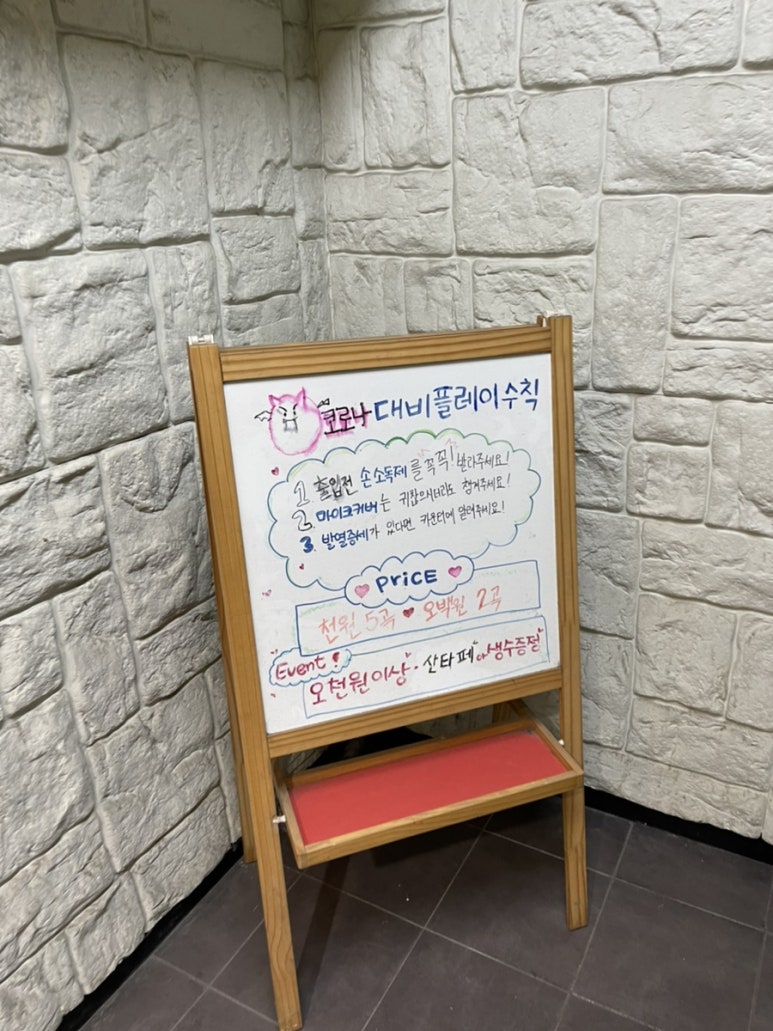 코로나 대비플레이수칙
1. 출입전 손소독제를 꼭꼭! 발라주세요!
2. 마이크커버는 귀찮으시더라도 챙겨주세요!
3. 발열증세가 있다면 카운터에 알려주세요!
PRICE
천원 5곡 오백원 2곡
Event!
오천원이상 · 산타페 or 생수증정